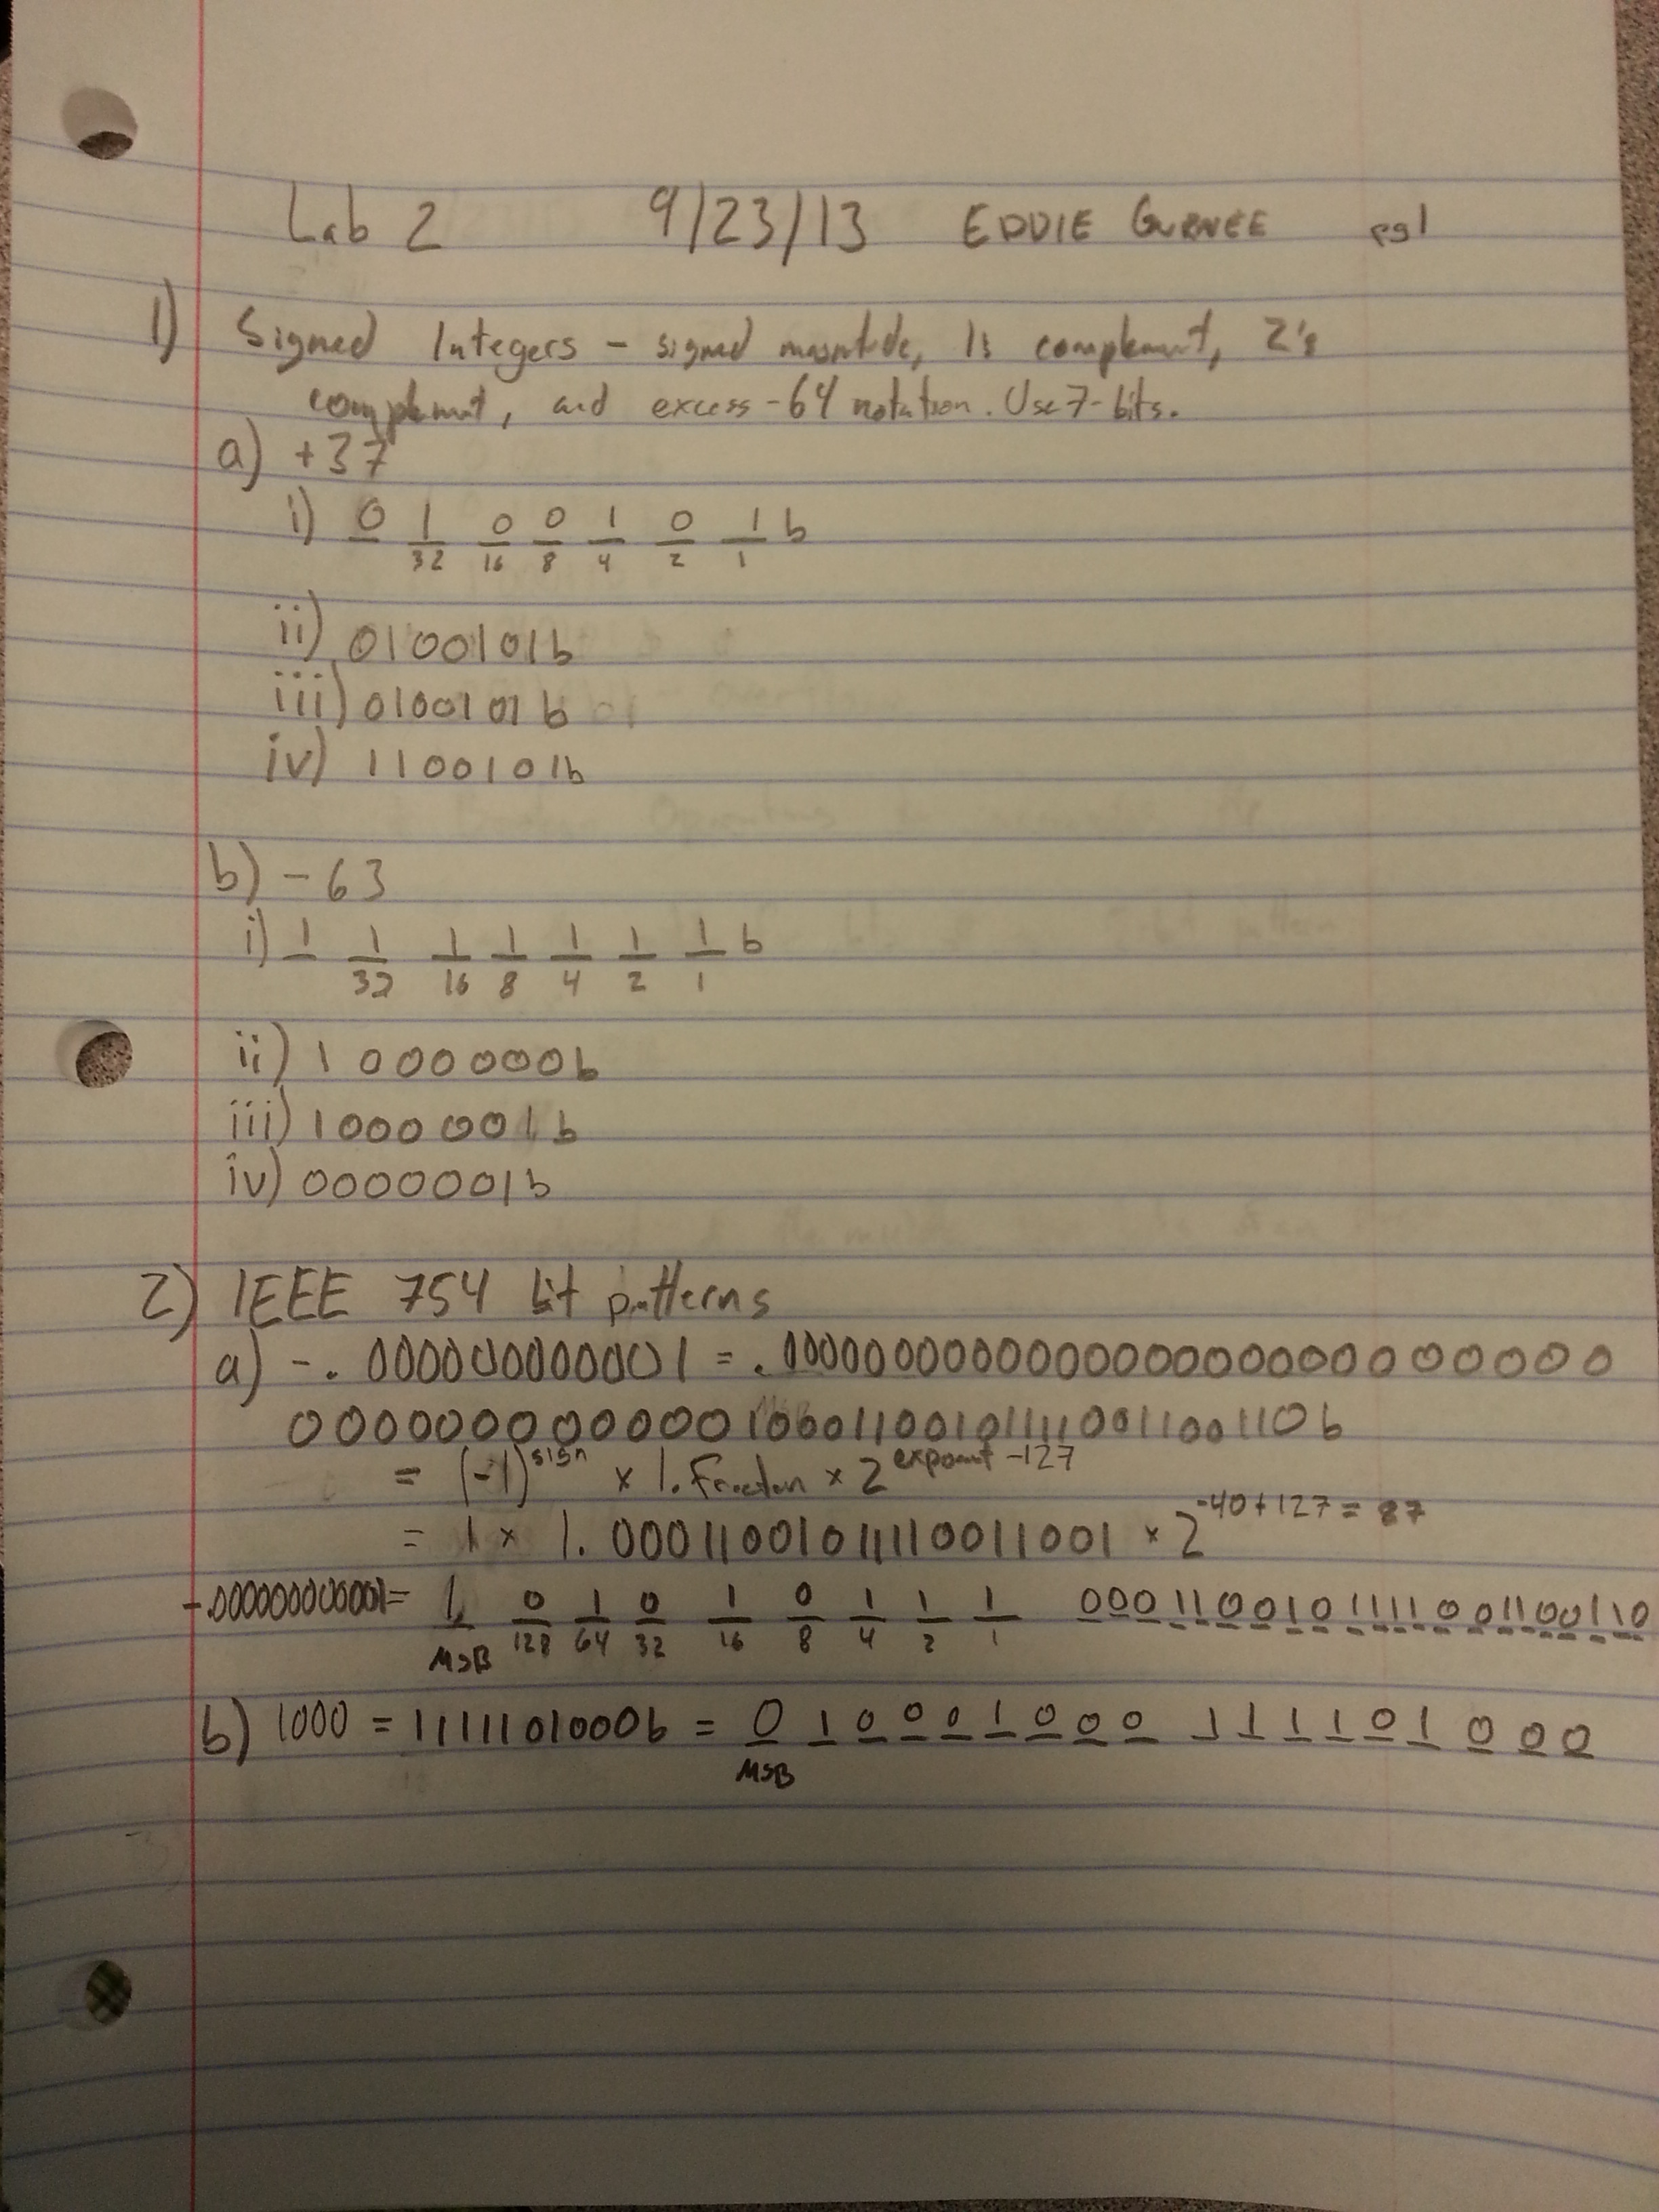 Lab 2 9/23/13 EDDIE GURNEE pg1
1) Signed Integers - signed magnitude, 1s complement, 2's
complement, and excess-64 notation. Use 7-bits.
a) +37
i) 0 1 0 0 1 0 1 b
32 16 8 4 2 1
ii) 0100101b
iii) 0100101b
iv) 1100101b
b) -63
i) 1 1 1 1 1 1 1 b
32 16 8 4 2 1
ii) 1000000b
iii) 1000001b
iv) 0000001b
2) IEEE 754 bit patterns
a) -.000000000001 =
= (-1)^sign × 1.Fraction × 2^exponent-127
= 1 × 1.00011001011110011001 × 2^-40+127=87
-.000000000001= 1 0 1 0 1 0 1 1 1 00011001011110011001 10
MSB 128 64 32 16 8 4 2 1
b) 1000 = 1111101000b = 0 1 0 0 0 1 0 0 0 1 1 1 1 0 1 0 0 0
MSB